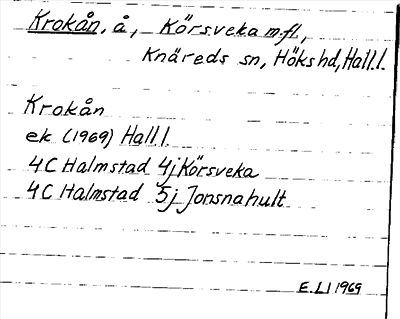 Krokån, å, Körsveka m.fl.,
Knäreds sn, Höks hd, Hall.l.
Krokån
ek (1969) Hall.l.
4C Halmstad 4j Körsveka
4C Halmstad 5j Jonsnahult
E.LI 1969